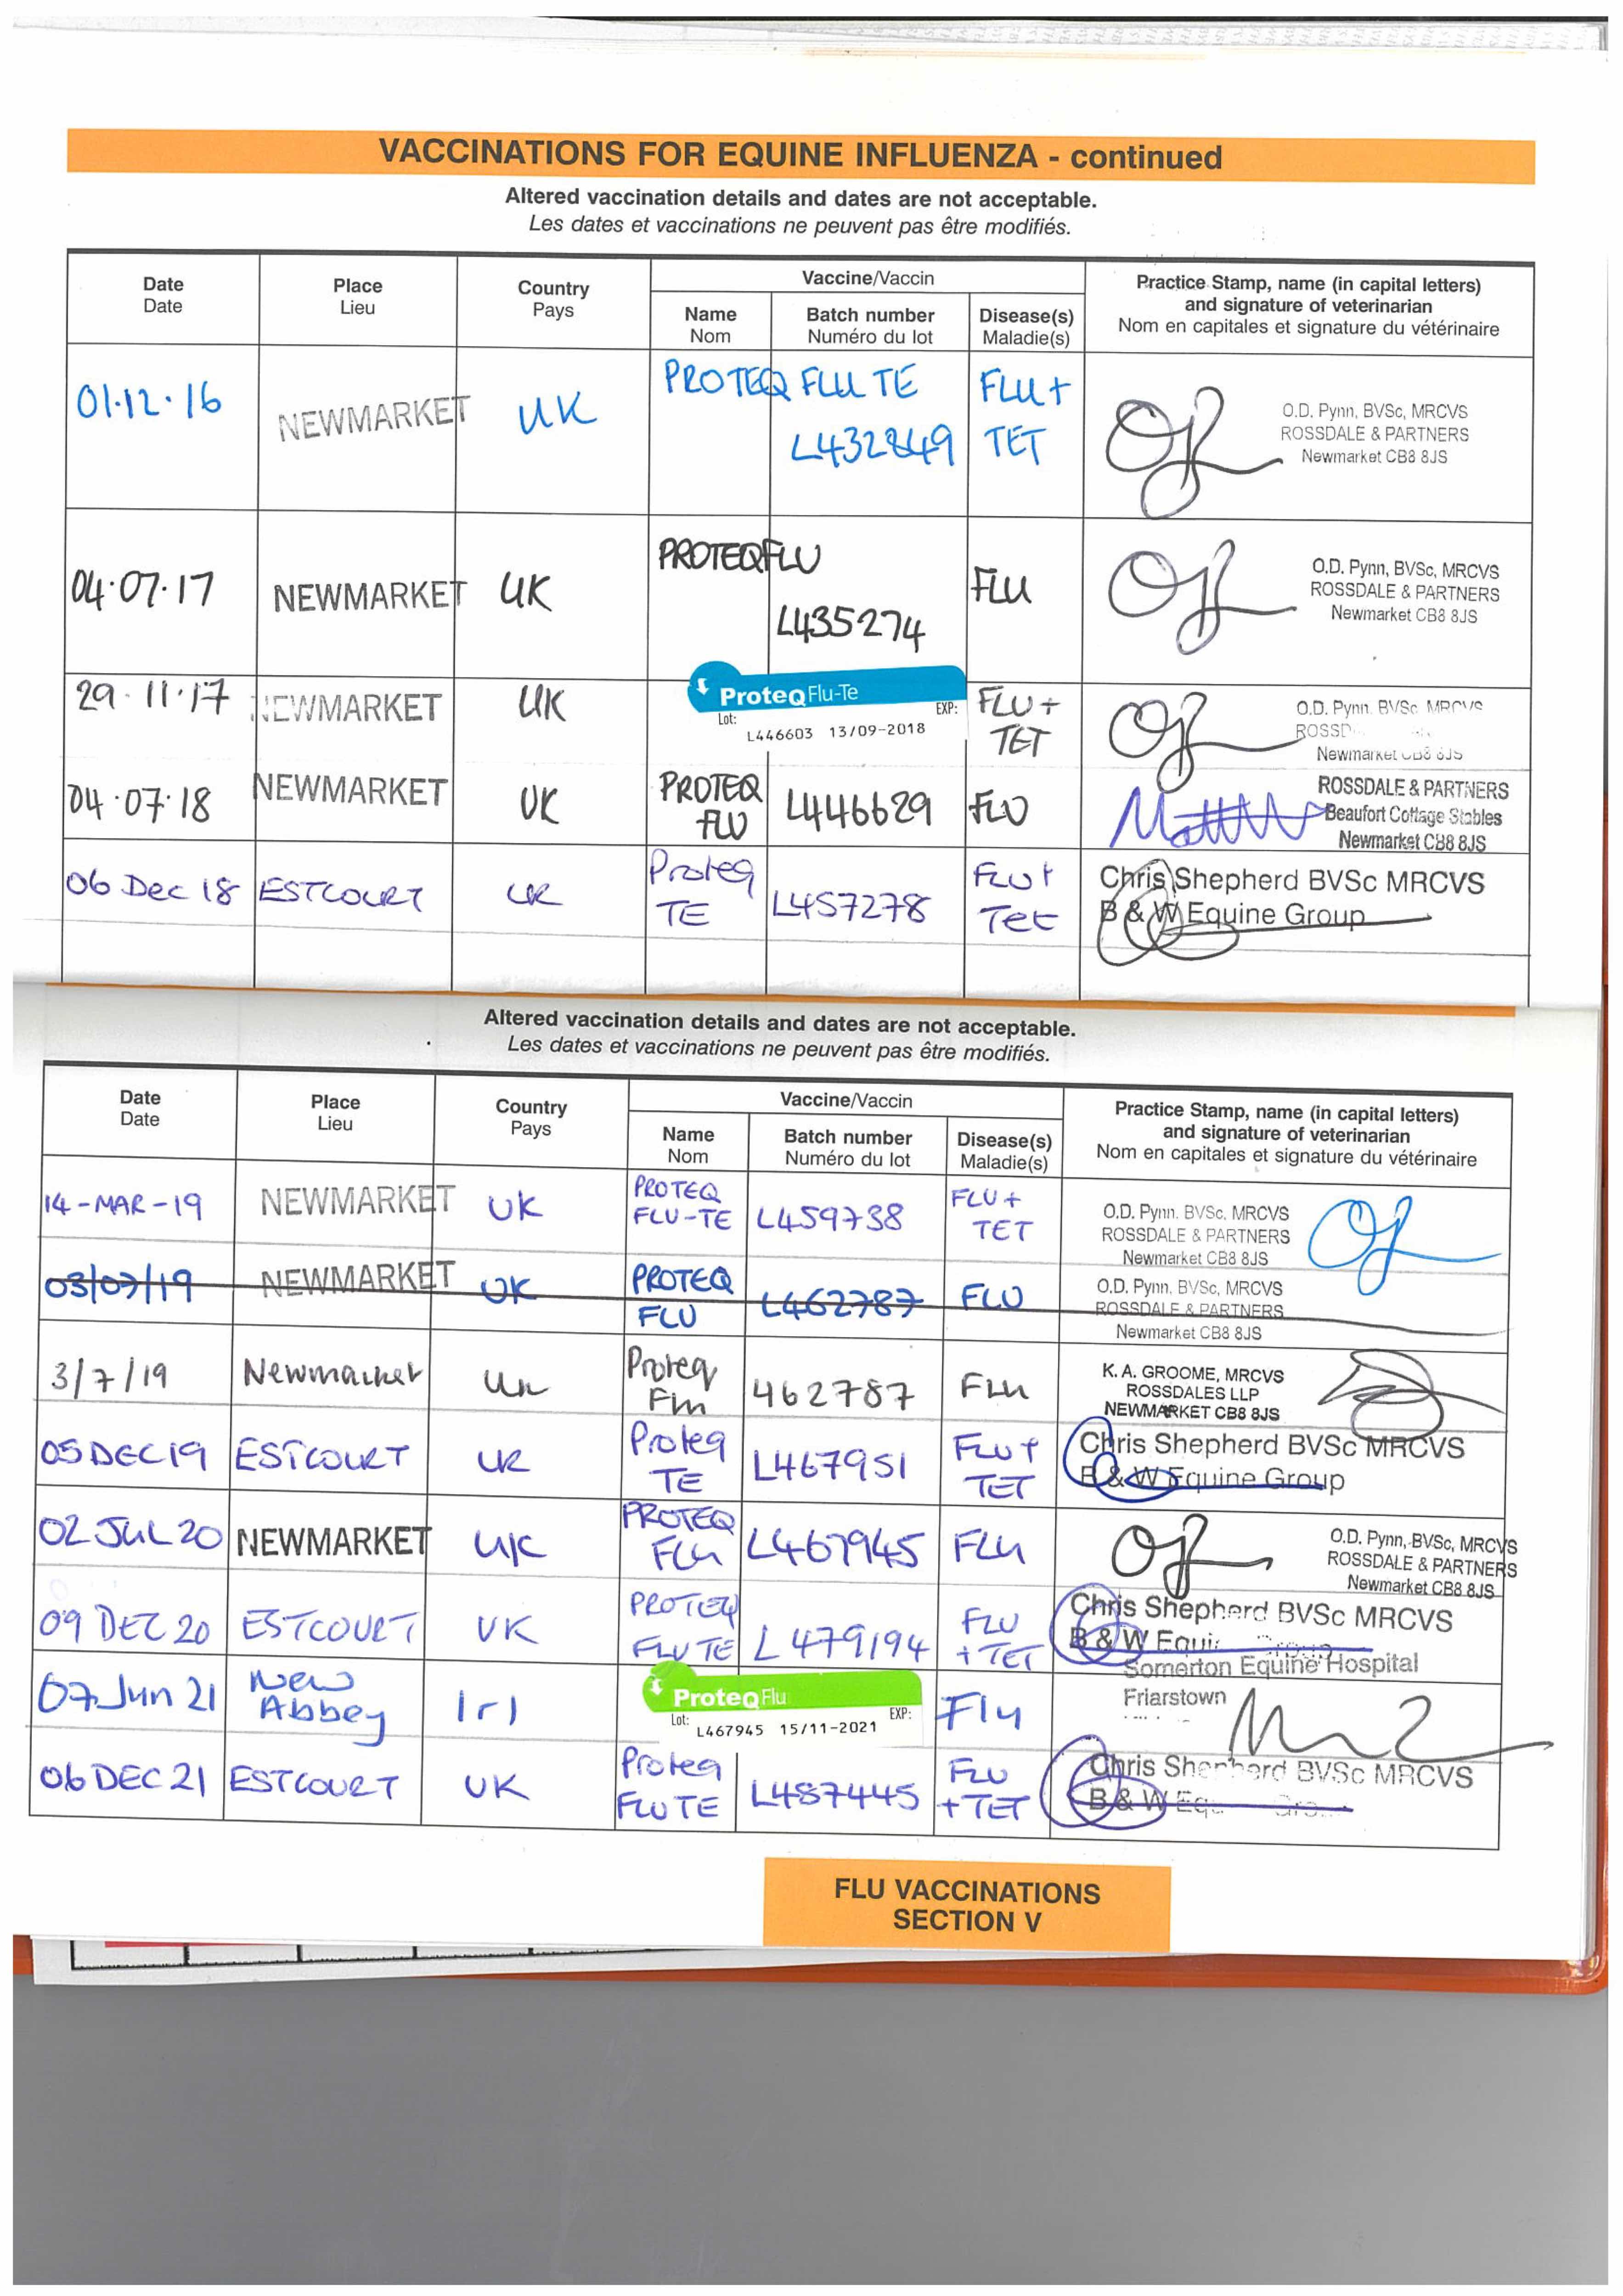 VACCINATIONS FOR EQUINE INFLUENZA - continued
Altered vaccination details and dates are not acceptable.
Les dates et vaccinations ne peuvent pas être modifiés.
Date Place Country Vaccine/Vaccin Practice Stamp, name (in capital letters)
Date Lieu Pays Name Batch number Disease(s) and signature of veterinarian
Nom Numéro du lot Maladie(s) Nom en capitales et signature du vétérinaire
01.12.16 NEWMARKET UK PROTEQ FLU TE FLU+ O.D. Pynn, BVSc, MRCVS
L432849 TET ROSSDALE & PARTNERS
Newmarket CB8 8JS
04.07.17 NEWMARKET UK PROTEQFLU FLU O.D. Pynn, BVSc, MRCVS
L435274 ROSSDALE & PARTNERS
Newmarket CB8 8JS
29.11.17 NEWMARKET UK ProteqFlu-Te FLU+ O.D. Pynn, BVSc, MRCVS
Lot: EXP: TET ROSSD
L446603 13/09-2018 Newmarket CB8 8JS
04.07.18 NEWMARKET UK PROTEQ L446629 FLU ROSSDALE & PARTNERS
FLU Beaufort Cottage Stables
Newmarket CB8 8JS
06 Dec 18 ESTCOURT UK Proteq L457278 FLU+ Chris Shepherd BVSc MRCVS
TE Tet B & W Equine Group
Altered vaccination details and dates are not acceptable.
Les dates et vaccinations ne peuvent pas être modifiés.
Date Place Country Vaccine/Vaccin Practice Stamp, name (in capital letters)
Date Lieu Pays Name Batch number Disease(s) and signature of veterinarian
Nom Numéro du lot Maladie(s) Nom en capitales et signature du vétérinaire
14-MAR-19 NEWMARKET UK PROTEQ L459738 FLU+ O.D. Pynn, BVSc, MRCVS
FLU-TE TET ROSSDALE & PARTNERS
Newmarket CB8 8JS
03/07/19 NEWMARKET UK PROTEQ L462787 FLU O.D. Pynn, BVSc, MRCVS
FLU ROSSDALE & PARTNERS
Newmarket CB8 8JS
3/7/19 Newmarket UK Proteq 462787 Flu K. A. GROOME, MRCVS
Flu ROSSDALES LLP
NEWMARKET CB8 8JS
05 DEC 19 ESTCOURT UK Proteq L467951 FLU+ Chris Shepherd BVSc MRCVS
TE TET B & W Equine Group
02 JUL 20 NEWMARKET UK PROTEQ L467945 FLU O.D. Pynn, BVSc, MRCVS
FLU ROSSDALE & PARTNERS
Newmarket CB8 8JS
09 DEC 20 ESTCOURT UK PROTEQ L479194 FLU Chris Shepherd BVSc MRCVS
FLU TE + TET B & W Equi
07 Jun 21 New Irl ProteqFlu Flu Somerton Equine Hospital
Abbey Lot: EXP: Friarstown
L467945 15/11-2021
06 DEC 21 ESTCOURT UK Proteq L487445 FLU Chris Shepherd BVSc MRCVS
FLU TE + TET B & W Eq
FLU VACCINATIONS
SECTION V